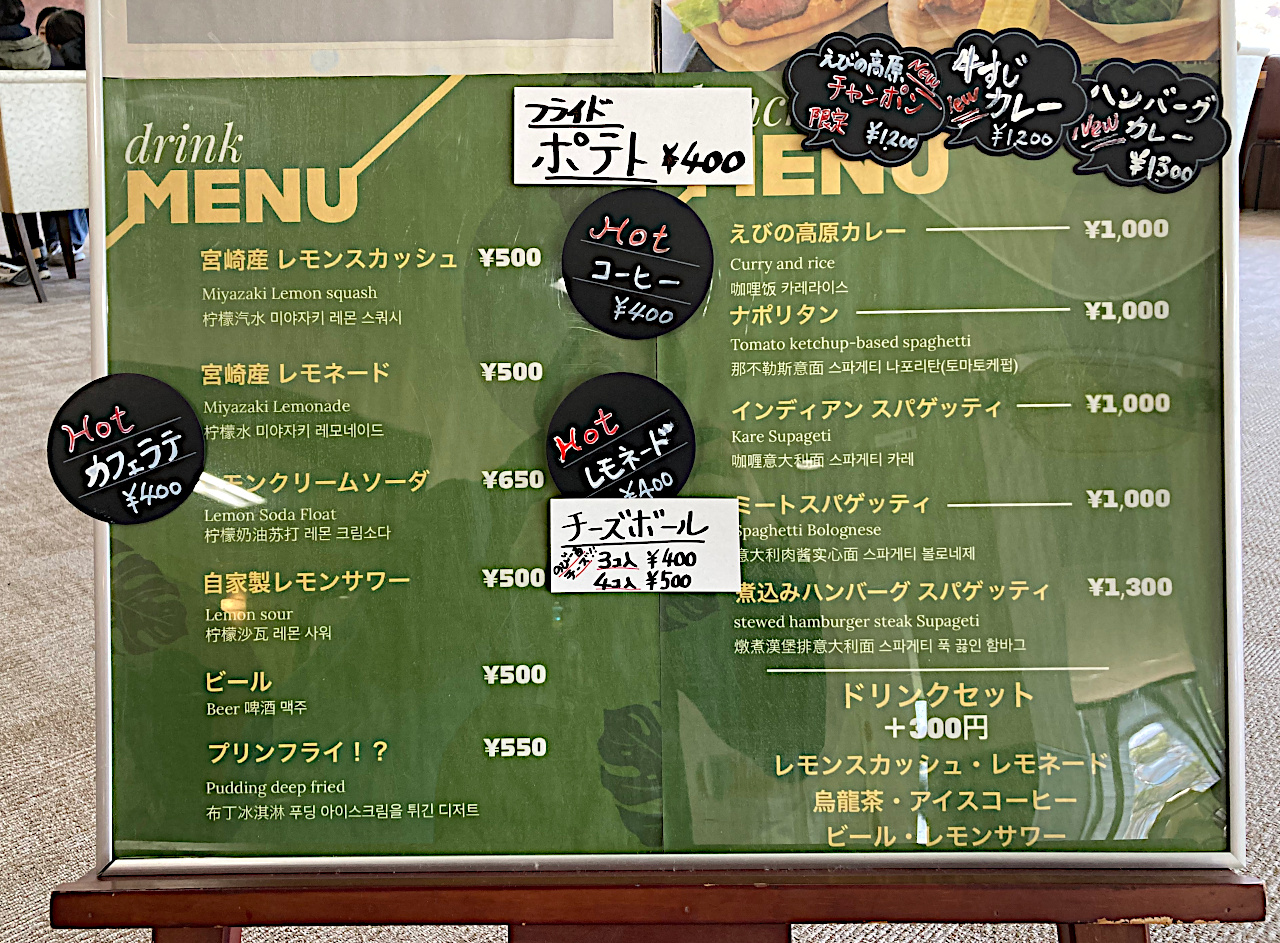 drink
MENU
宮崎産 レモンスカッシュ ¥500
Miyazaki Lemon squash
柠檬汽水 미야자키 레몬 스쿼시
宮崎産 レモネード ¥500
Miyazaki Lemonade
柠檬水 미야자키 레모네이드
モンクリームソーダ ¥650
Lemon Soda Float
柠檬奶油苏打 레몬 크림소다
自家製レモンサワー ¥500
Lemon sour
柠檬沙瓦 레몬 사워
ビール ¥500
Beer 啤酒 맥주
プリンフライ！？ ¥550
Pudding deep fried
布丁冰淇淋 푸딩 아이스크림을 튀긴 디저트
Hot
カフェラテ
¥400
フライド
ポテト ¥400
Hot
コーヒー
¥400
Hot
レモネード
¥400
チーズボール
3コ入 ¥400
4コ入 ¥500
えびの高原 New
チャンポン
限定 ¥1,200
牛すじ
New カレー
¥1,200
ハンバーグ
New カレー
¥1,300
MENU
えびの高原カレー ¥1,000
Curry and rice
咖哩饭 카레라이스
ナポリタン ¥1,000
Tomato ketchup-based spaghetti
那不勒斯意面 스파게티 나포리탄(토마토케첩)
インディアン スパゲッティ ¥1,000
Kare Supageti
咖喱意大利面 스파게티 카레
ミートスパゲッティ ¥1,000
Spaghetti Bolognese
意大利肉酱实心面 스파게티 볼로네제
煮込みハンバーグ スパゲッティ ¥1,300
stewed hamburger steak Supageti
燉煮漢堡排意大利面 스파게티 푹 끓인 함바그
ドリンクセット
＋300円
レモンスカッシュ・レモネード
烏龍茶・アイスコーヒー
ビール・レモンサワー